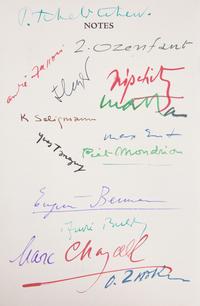 P. Tchelitchew
NOTES
A. Ozenfant
André Masson
Lipchitz
Matta
K Seligmann
Yves Tanguy
Max Ernst
Piet Mondrian
Eugene Berman
André Breton
Marc Chagall
O. Zadkine